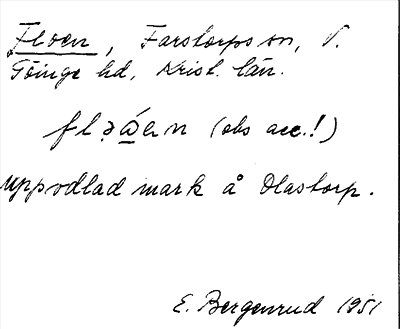 Floen, Farstorps sn, V.
Göinge hd, Krist. län.
fləá̱en (obs acc.!)
Uppodlad mark å Olastorp.
E. Bergenrud 1951